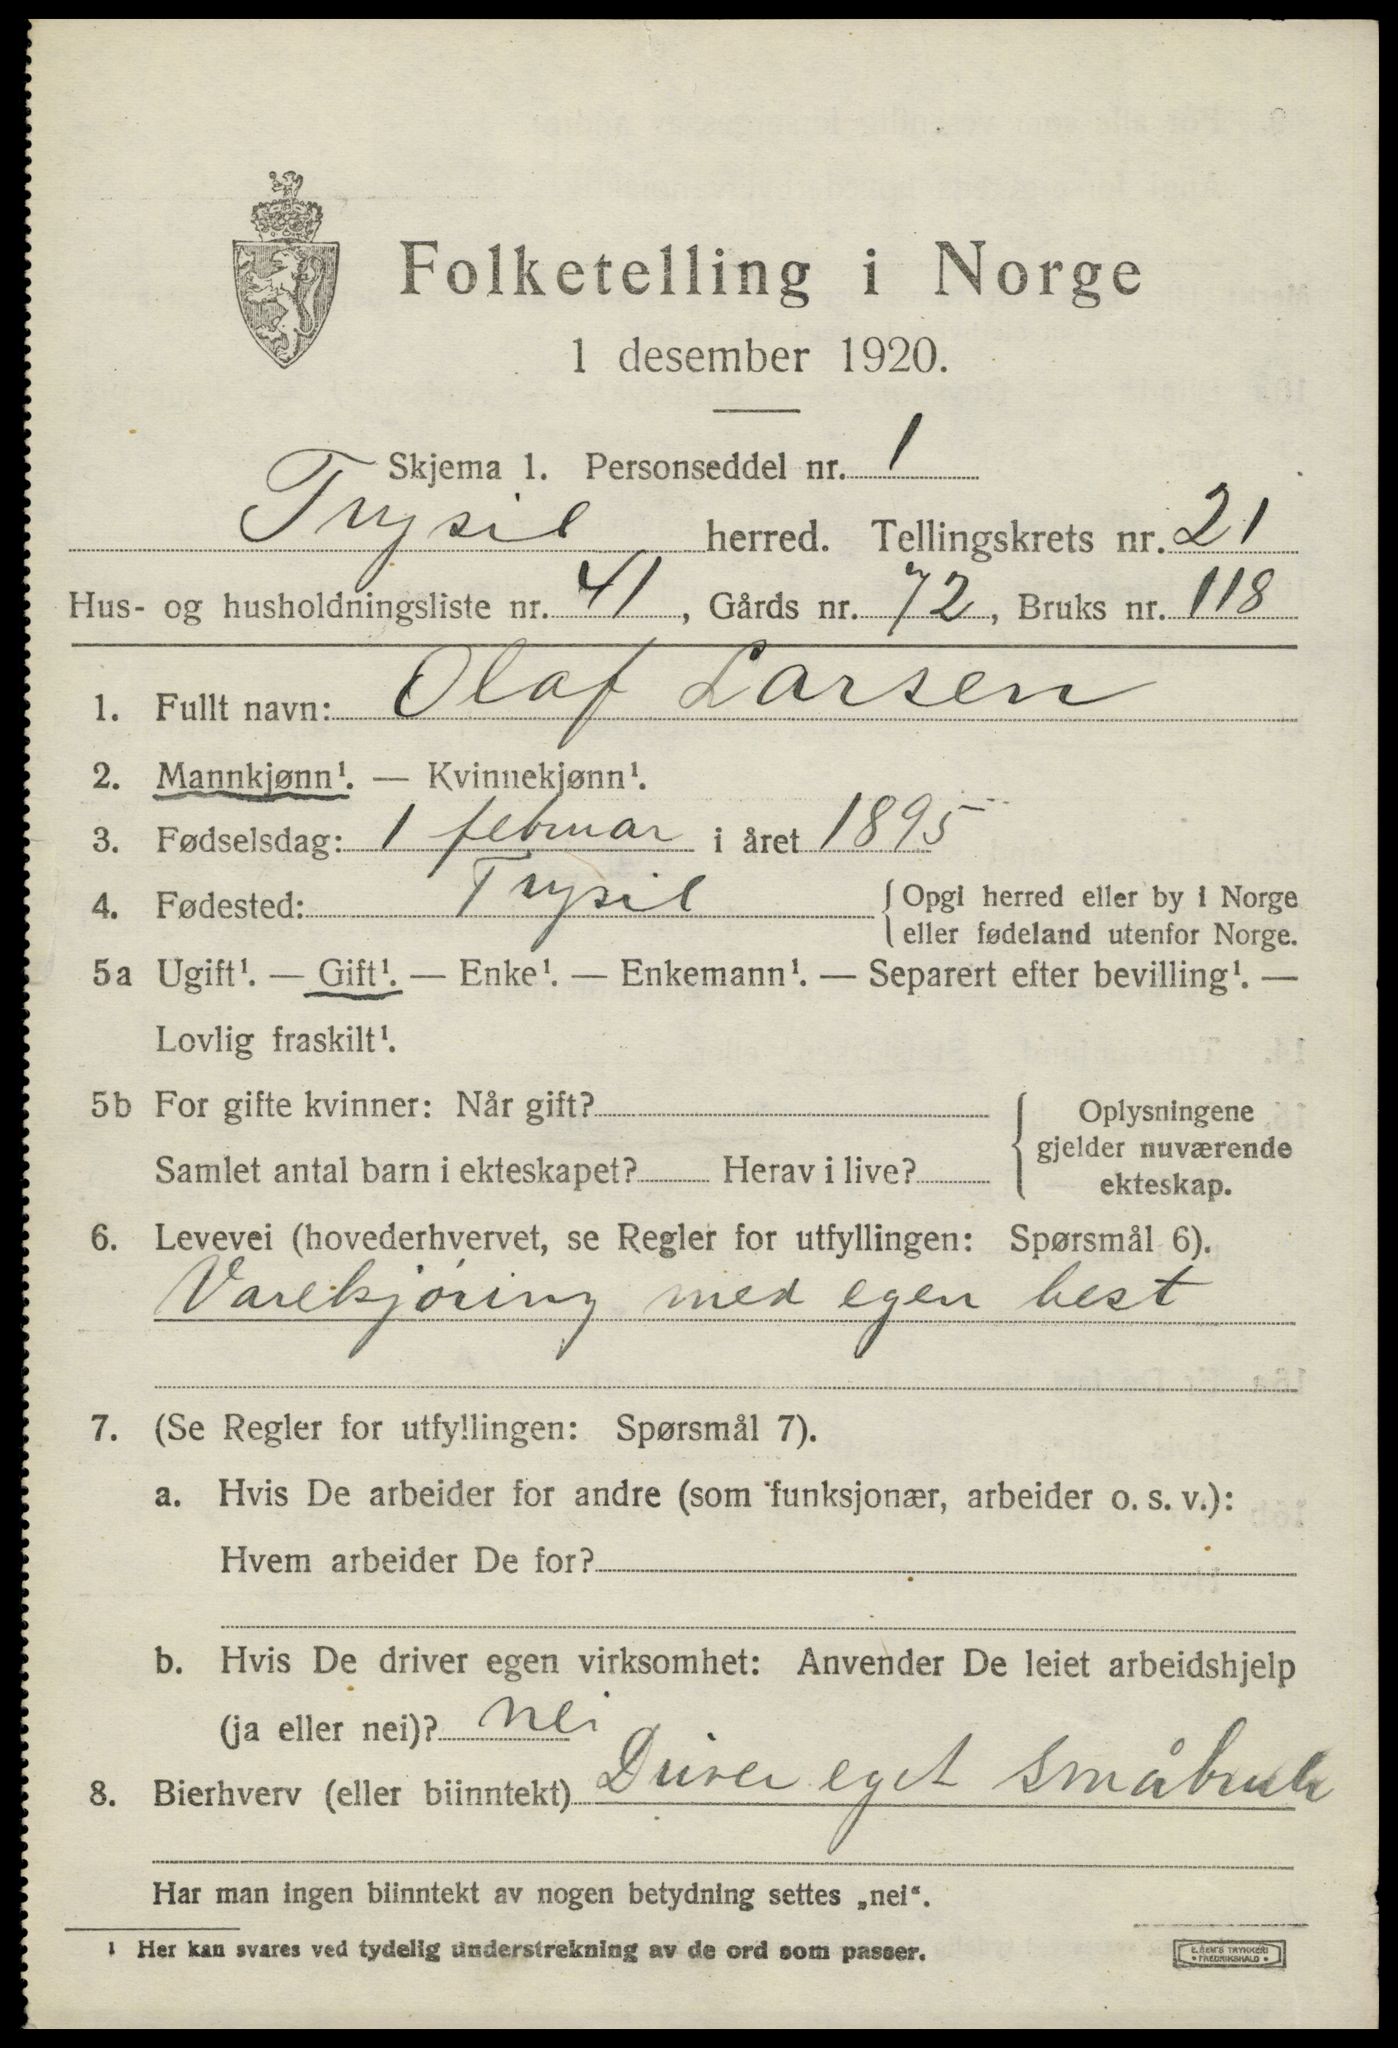 Folketelling i Norge
1 desember 1920.
Skjema 1. Personseddel nr. 1
Trysil herred. Tellingskrets nr. 21
Hus- og husholdningsliste nr. 41, Gårds nr. 72, Bruks nr. 118
1. Fullt navn: Olaf Larsen
2. Mannkjønn¹. — Kvinnekjønn¹.
3. Fødselsdag: 1 februar i året 1895
4. Fødested: Trysil { Opgi herred eller by i Norge
eller fødeland utenfor Norge.
5a Ugift¹. — Gift¹. — Enke¹. — Enkemann¹. — Separert efter bevilling¹. —
Lovlig fraskilt¹.
5b For gifte kvinner: Når gift? { Oplysningene
gjelder nuværende
Samlet antal barn i ekteskapet? Herav i live?
ekteskap.
6. Levevei (hovederhvervet, se Regler for utfyllingen: Spørsmål 6).
Varekjøring med egen hest
7. (Se Regler for utfyllingen: Spørsmål 7).
a. Hvis De arbeider for andre (som funksjonær, arbeider o. s. v.):
Hvem arbeider De for?
b. Hvis De driver egen virksomhet: Anvender De leiet arbeidshjelp
(ja eller nei)? nei
8. Bierhverv (eller biinntekt) Driver eget småbruk
Har man ingen biinntekt av nogen betydning settes „nei“.
¹ Her kan svares ved tydelig understrekning av de ord som passer.
E. SEM'S TRYKKERI
• FREDRIKSHALD •